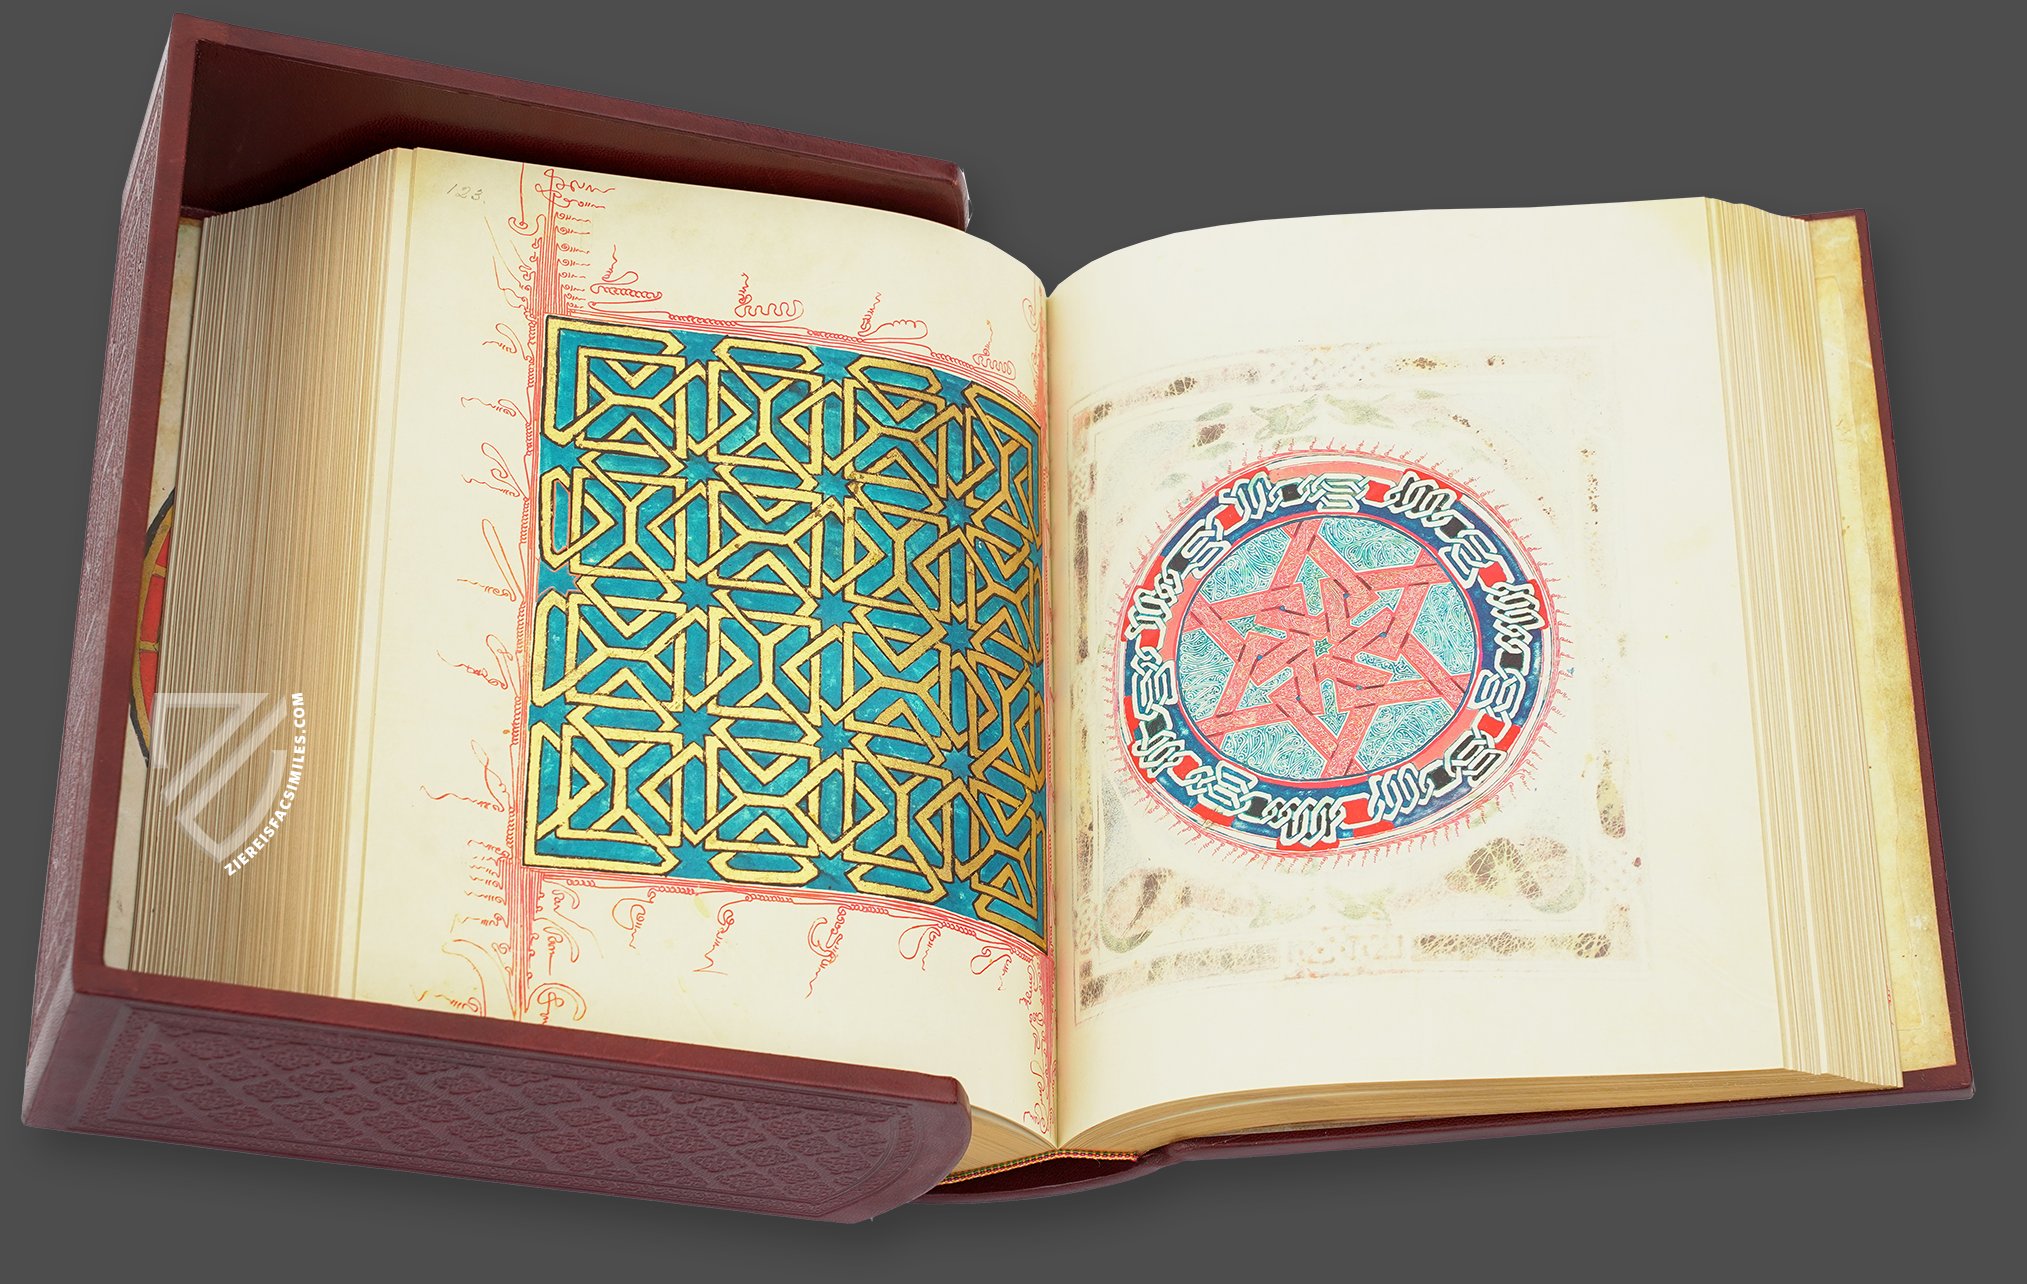 123.
ZIEREISFACSIMILES.COM